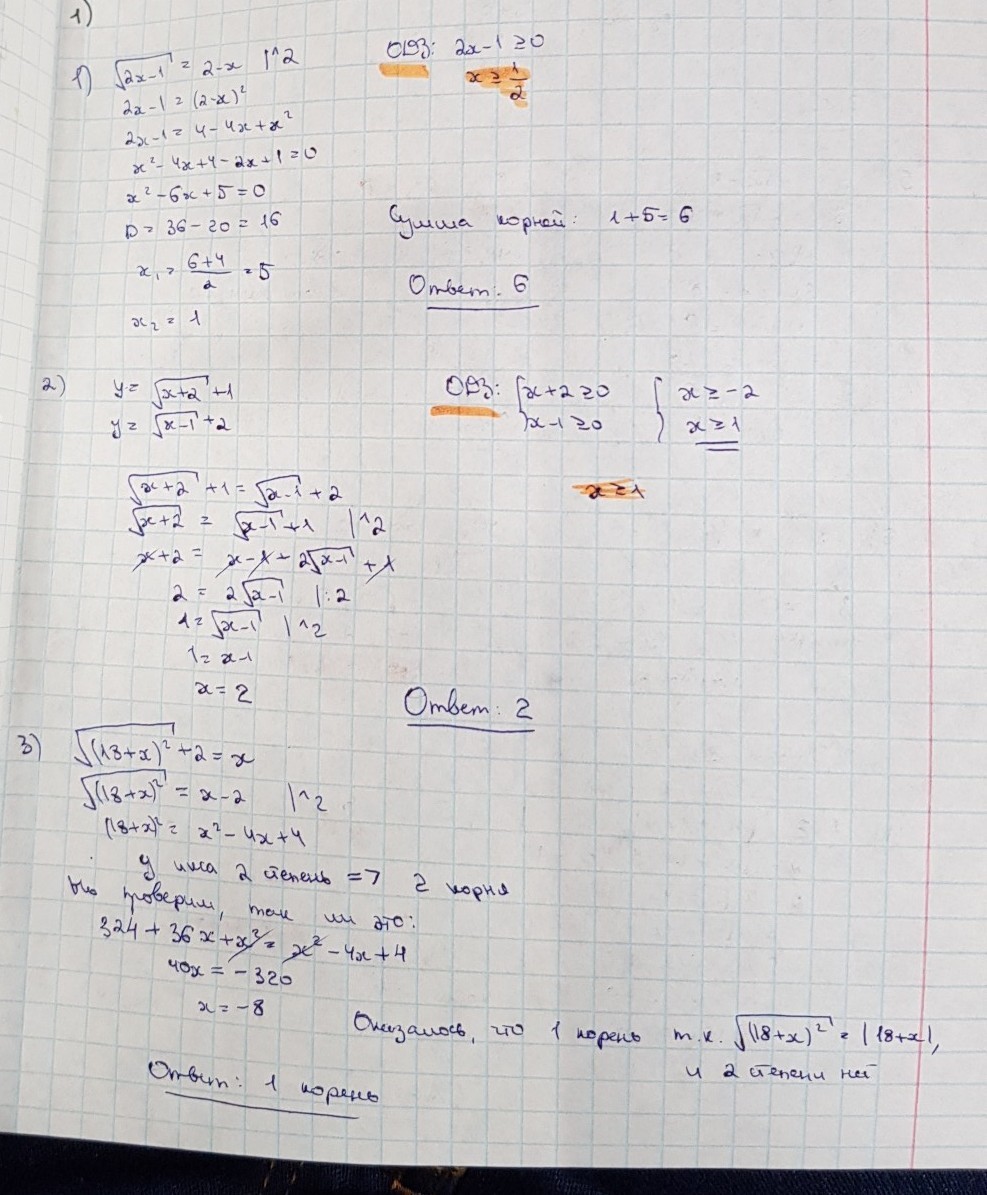 1)
1) √(2x-1) = 2-x |^2
ОДЗ: 2x-1 ≥0
x ≥ 1/2
2x-1 = (2-x)²
2x-1 = 4-4x+x²
x²-4x+4-2x+1=0
x²-6x+5=0
D = 36-20 = 16
Сумма корней: 1+5=6
x₁ = (6+4)/2 = 5
Ответ: 6
x₂ = 1
2) y= √(x+2) +1
y= √(x-1) +2
ОДЗ: { x+2 ≥0 { x ≥ -2
x-1 ≥0 x ≥ 1
√(x+2) +1 = √(x-1) +2
x ≥ 1
√(x+2) = √(x-1) +1 |^2
x+2 = x-1 + 2√(x-1) +1
2 = 2√(x-1) |:2
1= √(x-1) |^2
1= x-1
x = 2
Ответ: 2
3) √((18+x)²) +2 = x
√((18+x)²) = x-2 |^2
(18+x)² = x²-4x+4
У икса 2 степень => 2 корня
Но проверим, так ли это:
324+36x+x² = x²-4x+4
40x = -320
x = -8
Оказалось, что 1 корень т.к. √((18+x)²) = |18+x|,
и 2 степени нет
Ответ: 1 корень